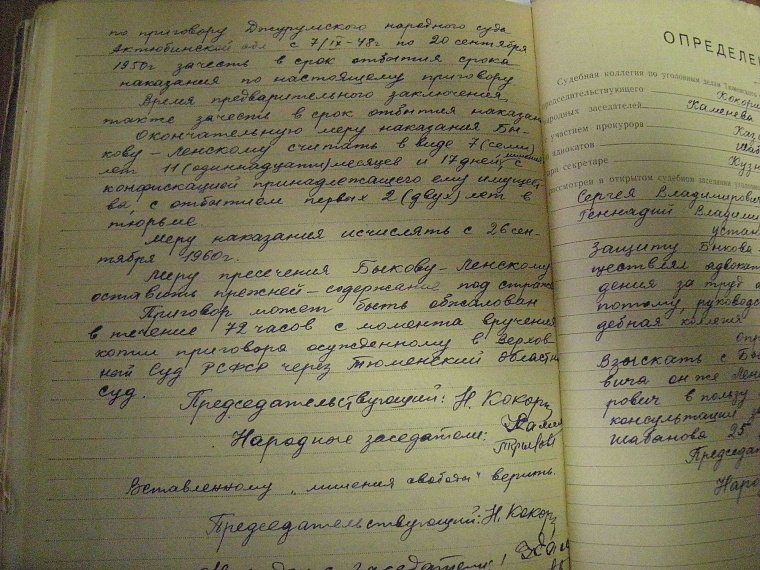 по приговору Джурумского народного суда
Актюбинской обл с 7/IX-48г по 20 сентября
1950г зачесть в срок отбытия срока
наказания по настоящему приговору
Время предварительного заключения
также зачесть в срок отбытия наказан
Окончательную меру наказания Бы-
кову-Ленскому считать в виде 7 (семи)
лет 11 (одиннадцати) месяцев и 17 дней, с
конфискацией принадлежащего ему имущест-
ва, с отбытием первых 2 (двух) лет в
тюрьме
Меру наказания исчислять с 26 сен-
тября 1960г.
Меру пресечения Быкову-Ленскому
оставить прежней - содержание под стражей
Приговор может быть обжалован
в течение 72 часов с момента вручения
копии приговора осужденному в Верхов
ный Суд РСФСР через Тюменский областн
суд.
Председательствующий: Н. Кокор
Народные заседатели:
Вставленному „лишения свободы" верить.
Председательствующий: Н. Кокор
ОПРЕДЕЛЕ
Судебная коллегия по уголовным делам Тюменского
председательствующего Кокори
народных заседателей Каменева
с участием прокурора Каз
адвокатов Шаб
при секретаре Кузн
рассмотрев в открытом судебном заседании уголовн
Сергея Владимирович
Геннадий Владими
устан
Защиту Быкова-
ществлял адвокат
дения за труд
поэтому, руководс
дебная коллегия
опр
Взыскать с Бы
вича он же Лен
рович в пользу
консультации за
Шабанова 25
Председа
Наро